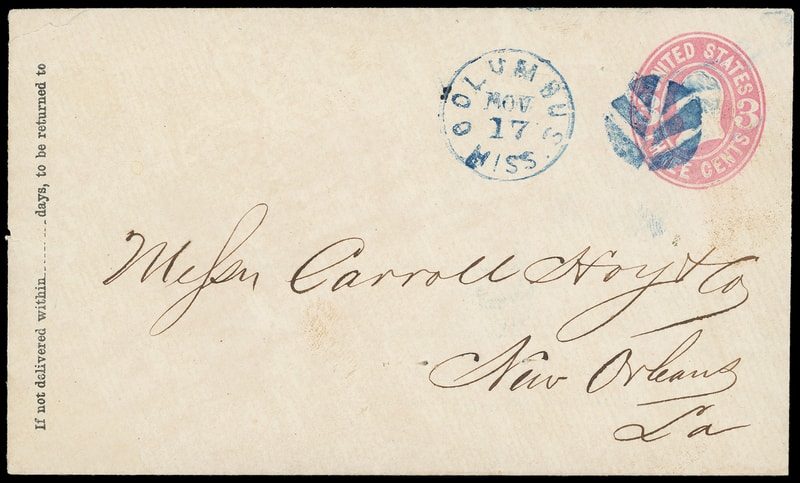 If not delivered within........days, to be returned to
COLUMBUS
NOV
17
MISS.
UNITED STATES
3
THREE CENTS
Messrs Carroll Hoy & Co
New Orleans
La